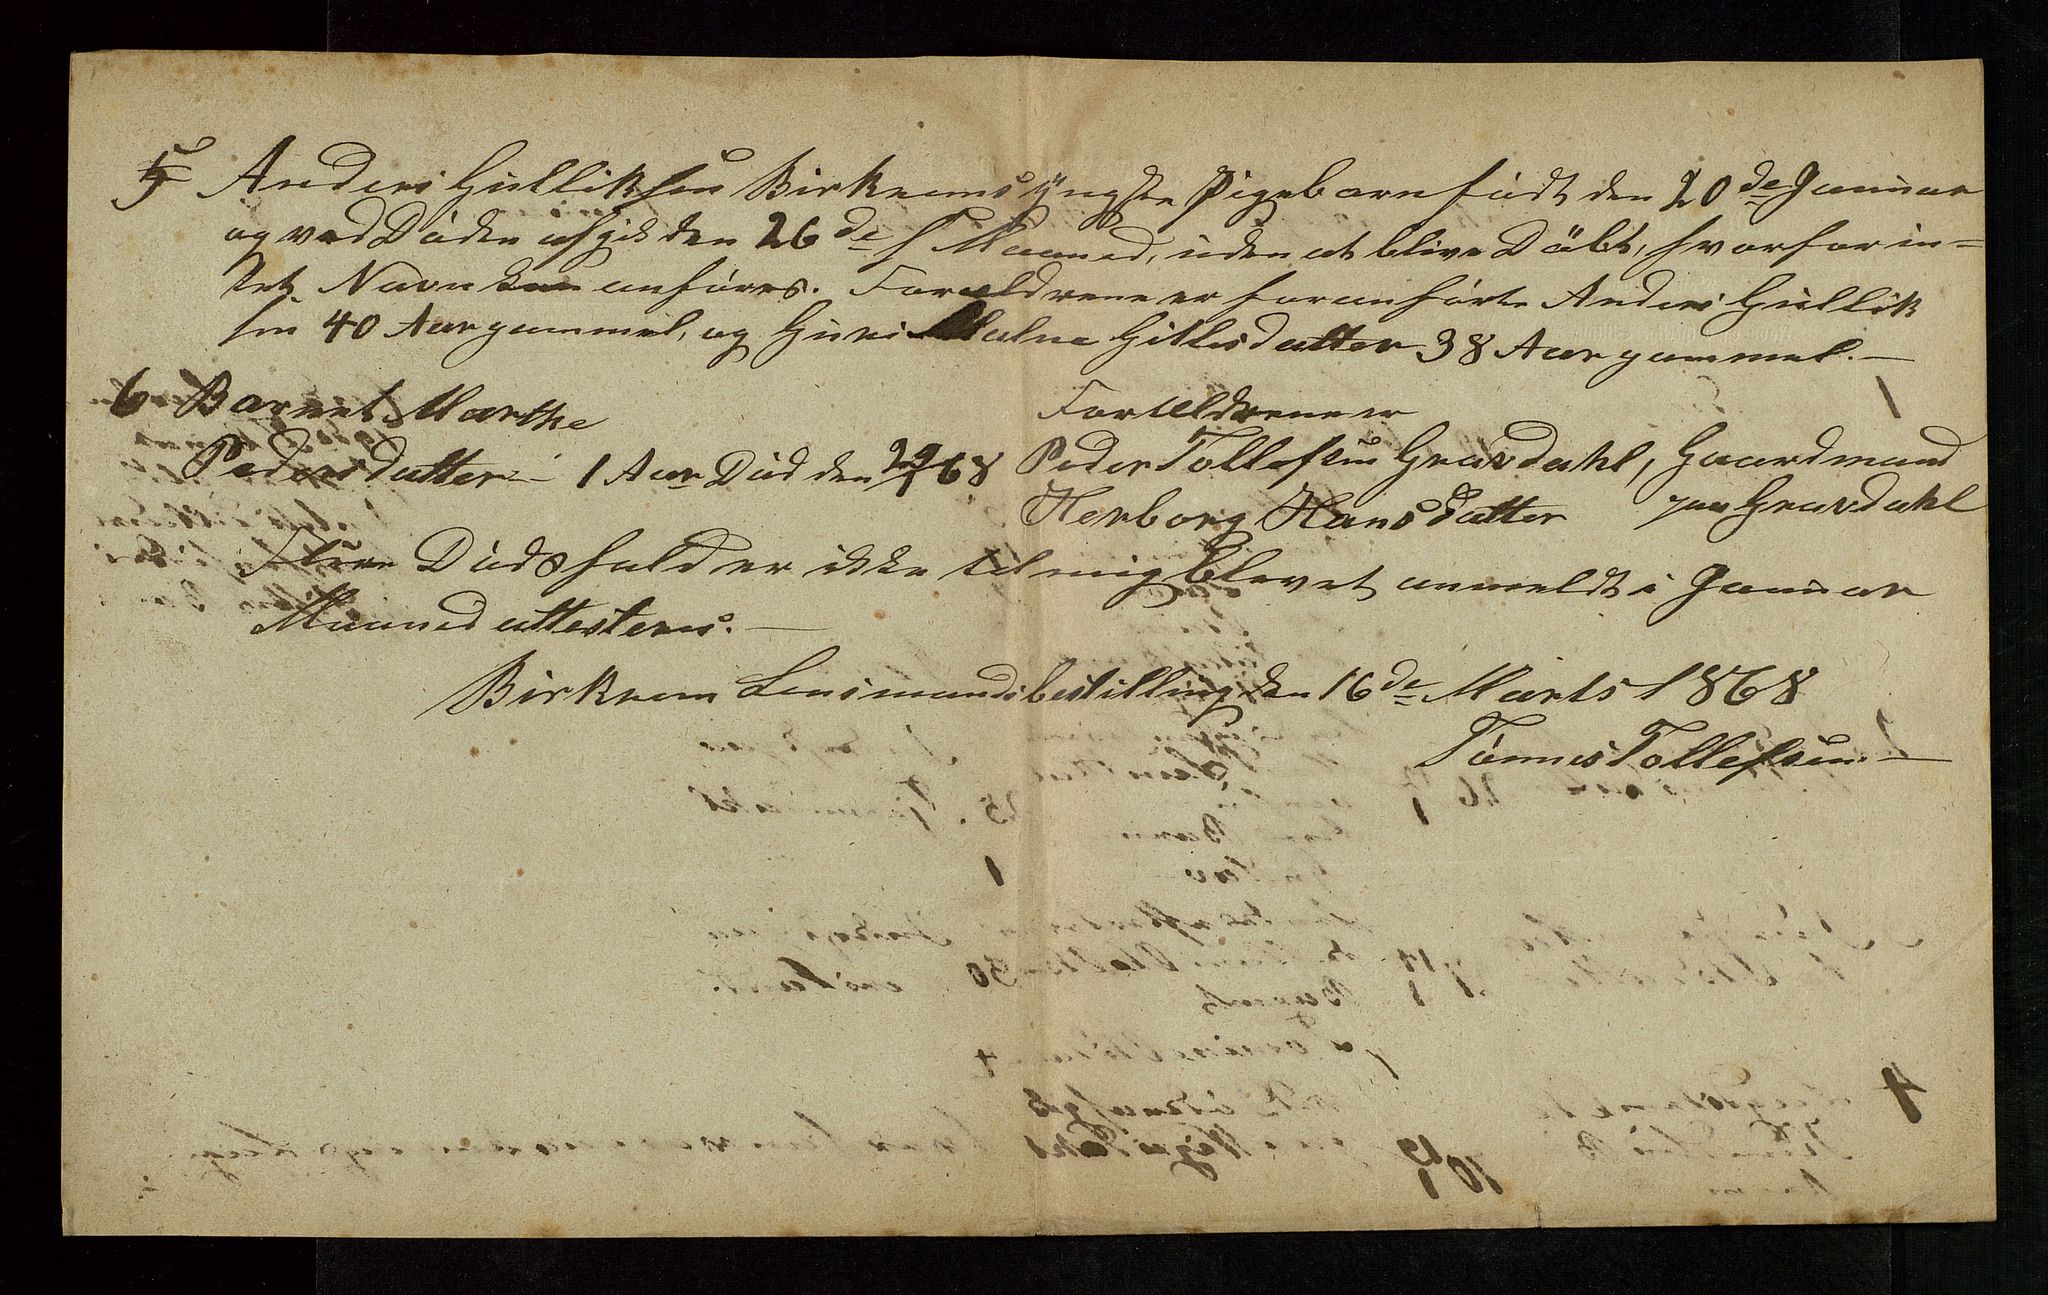 5 Anders Gulliksen Birkrems yngste Pigebarn født den 20de Januar
og ved Døden afgik den 26de s Maaned, uden at blive Døbt, hvorfor in=
tet Navn kan anføres. Forældrene er foranførte Anders Gullik
sen 40 Aar gammel, og Guri Malne Gitlesdatter 38 Aar gammel.—
6 Barnet Marthe
Pedersdatter — 1 Aar Død den 29/1 68
Forældrene er
Peder Tollefsen Gravdahl, Gaardmand
Herborg Hansdatter paa Gravdahl
Flere Dødsfald er ikke til mig blevet anmeldt i Januar
Maaned attesteres.—
Birkrem Lensmandsbestilling den 16de Marts 1868
Tønnes Tollefsen.—